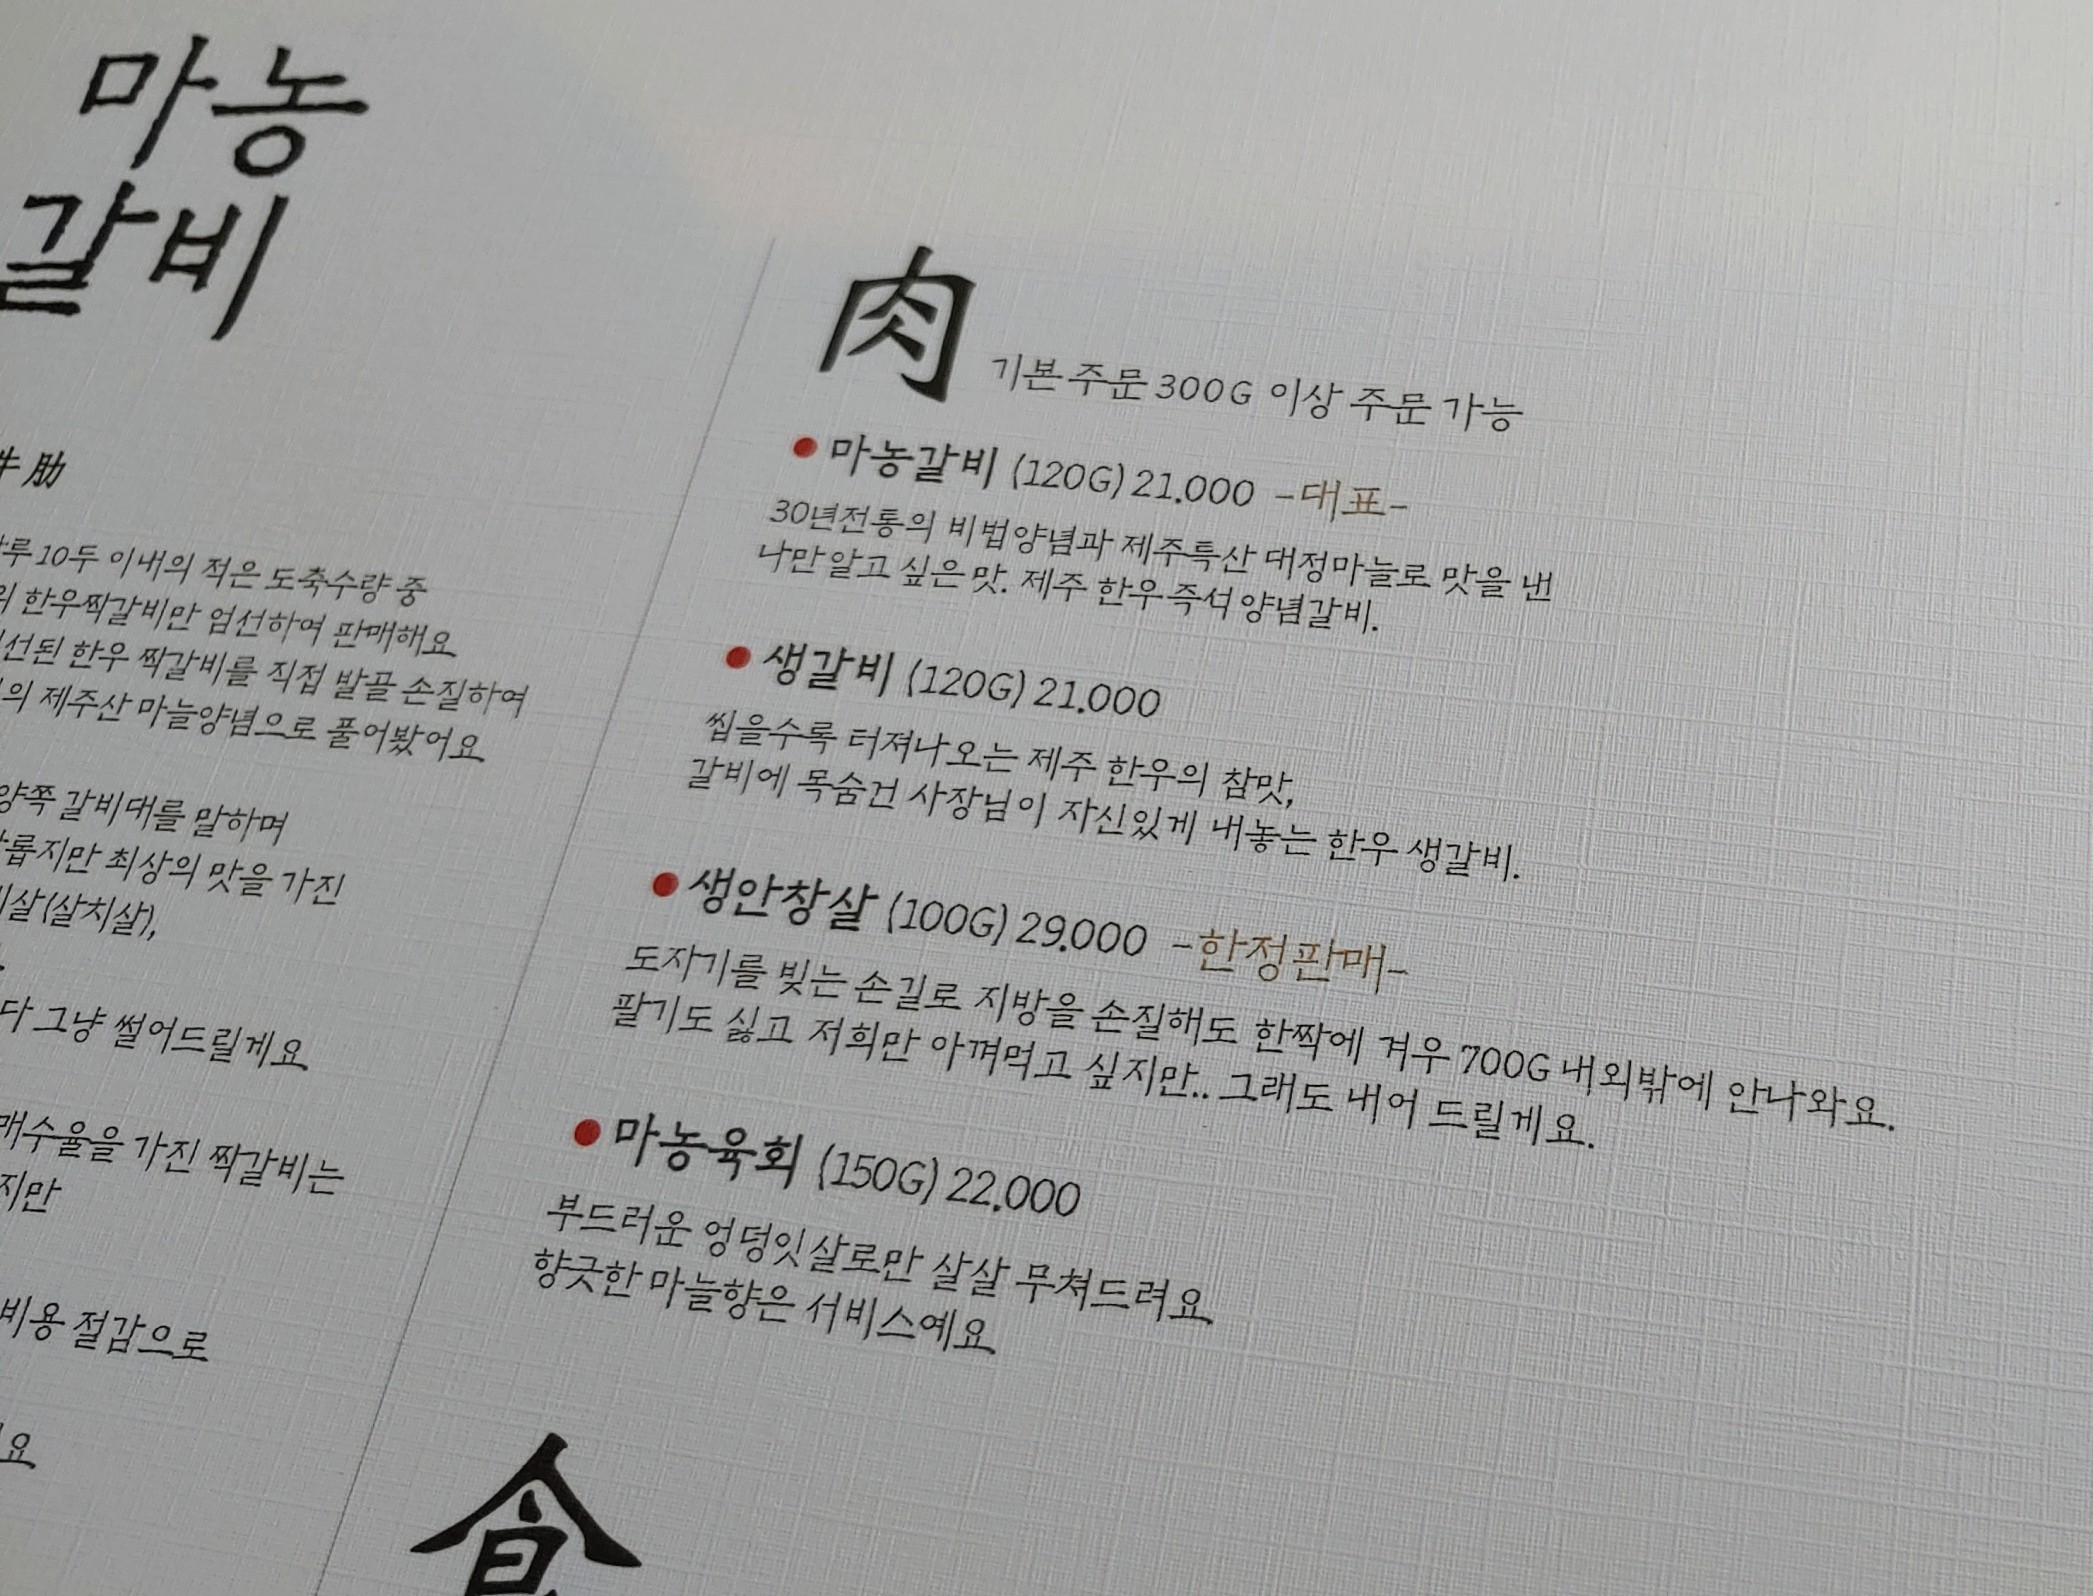 마농
갈비
肋
10두 이내의 적은 도축수량 중
한우짝갈비만 엄선하여 판매해요
한우 짝갈비를 직접 발골 손질하여
제주산 마늘양념으로 풀어봤어요
갈비대를 말하며
최상의 맛을 가진
(살치살),
그냥 썰어드릴게요
가진 짝갈비는
절감으로
肉 기본 주문 300G 이상 주문 가능
마농갈비 (120G) 21.000 -대표-
30년전통의 비법양념과 제주특산 대정마늘로 맛을 낸
나만 알고 싶은 맛. 제주 한우 즉석 양념갈비.
생갈비 (120G) 21.000
씹을수록 터져나오는 제주 한우의 참맛,
갈비에 목숨건 사장님이 자신있게 내놓는 한우 생갈비.
생안창살 (100G) 29.000 -한정판매-
도자기를 빚는 손길로 지방을 손질해도 한짝에 겨우 700G 내외밖에 안나와요.
팔기도 싫고 저희만 아껴먹고 싶지만.. 그래도 내어 드릴게요.
마농육회 (150G) 22.000
부드러운 엉덩잇살로만 살살 무쳐드려요
향긋한 마늘향은 서비스예요
食